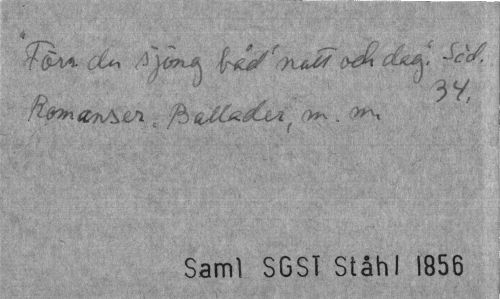 "Förr du sjöng båd' natt och dag". Sid.
34.
Romanser. Ballader, m. m.
Saml SGST Ståhl 1856